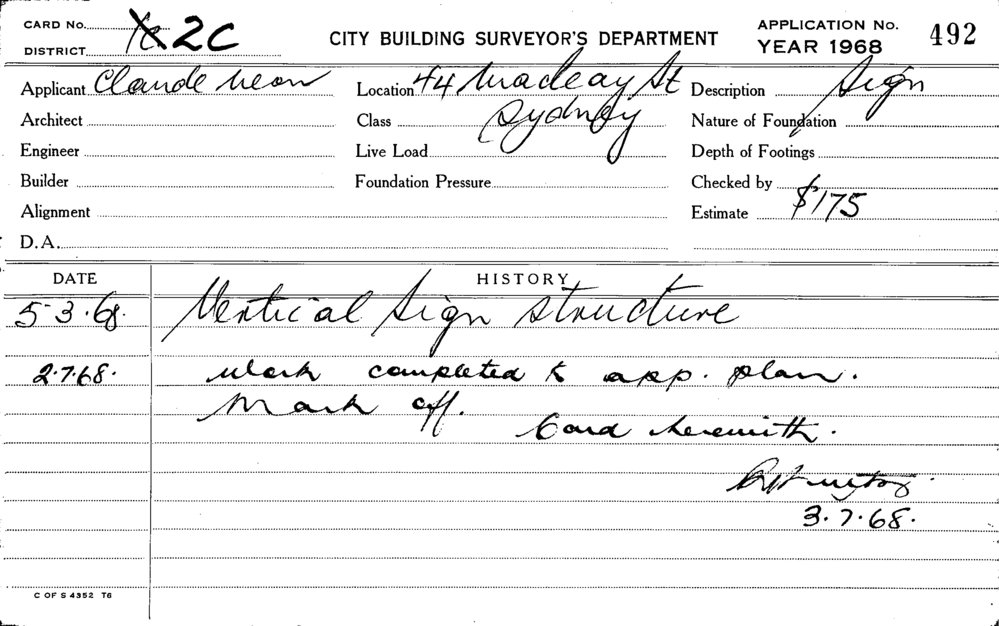 CARD No. 2C
DISTRICT
CITY BUILDING SURVEYOR'S DEPARTMENT
APPLICATION No. 492
YEAR 1968
Applicant Claude Neon
Location 44 Macleay St
Sydney
Description Sign
Architect
Class
Nature of Foundation
Engineer
Live Load
Depth of Footings
Builder
Foundation Pressure
Checked by
Alignment
Estimate $175
D.A.
DATE
HISTORY
5.3.68. Vertical Sign Structure
2.7.68. Work completed to app. plan.
Mark off.
Card herewith.
3.7.68.
C OF S 4352 T6